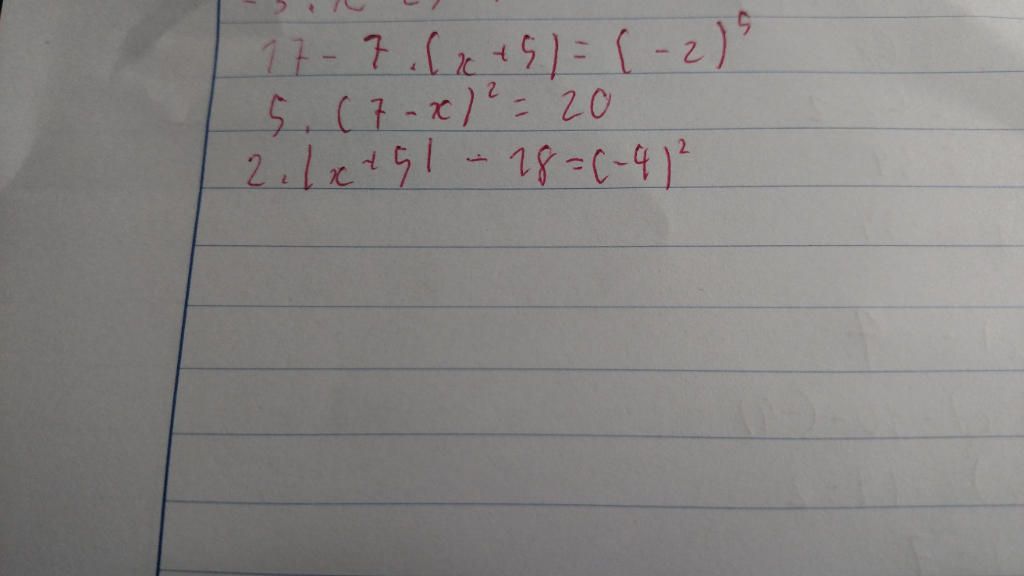 17 - 7 . (x + 5) = (-2)⁵
5 . (7 - x)² = 20
2 . |x + 5| - 28 = (-4)²